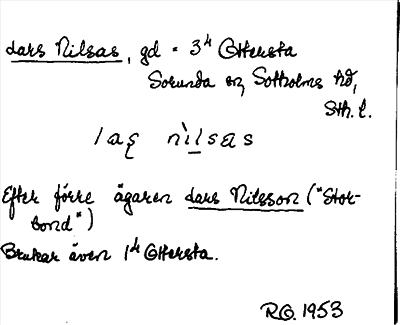 Lars Nilsas, gd = 3/4 Ottersta
Sorunda sn, Sotholms hd,
Sth. l.
laʂ nìlsas
Efter förre ägaren Lars Nilsson ("Stor-
bond")
Brukar även 1/4 Ottersta.
R.O. 1953